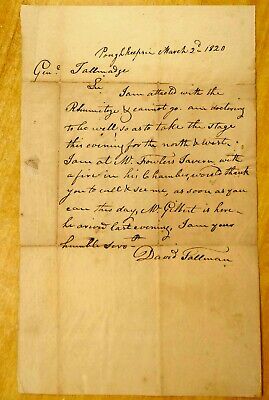 Poughkeepsie March 2d 1820
Genl Tallmadge
Sir
I am attacted with the
Rhumetize & cannot go. am
to be well so as to take the stage
this evening for the north & west.
I am at Mr. Fowlers Tavern with
a fire in his Chamber, wood thank
you to call & see me as soon as you
can this day, Mr. Gilbert is here
he arived last evening, I am your
humble Servt
David Tallman